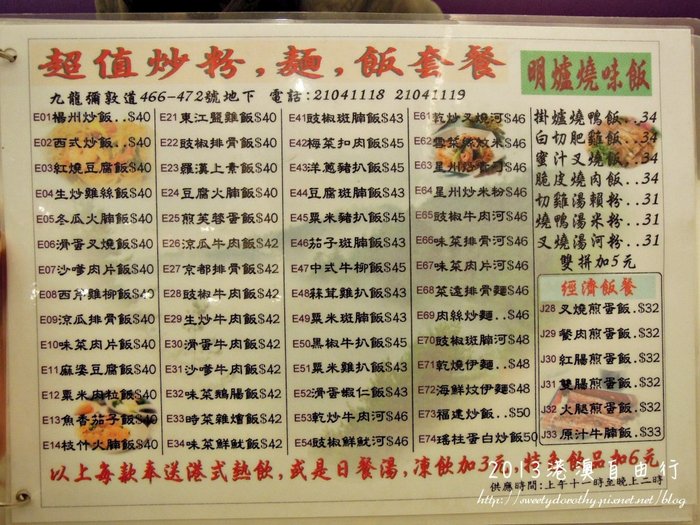 超值炒粉,麵,飯套餐
明爐燒味飯
九龍彌敦道466-472號地下 電話:21041118 21041119
E01楊州炒飯..$40
E02西式炒飯..$40
E03紅燒豆腐飯$40
E04生炒雞絲飯$40
E05冬瓜火腩飯$40
E06滑蛋叉燒飯$40
E07沙爹肉片飯$40
E08西芹雞柳飯$40
E09涼瓜排骨飯$40
E10味菜肉片飯$40
E11麻婆豆腐飯$40
E12粟米肉粒飯$40
E13魚香茄子飯$40
E14枝什火腩飯$40
E21東江鹽雞飯$40
E22豉椒排骨飯$40
E23羅漢上素飯$40
E24豆腐火腩飯$40
E25煎芙蓉蛋飯$40
E26涼瓜牛肉飯$42
E27京都排骨飯$42
E28豉椒牛肉飯$42
E29生炒牛肉飯$42
E30滑蛋牛肉飯$42
E31沙爹牛肉飯$42
E32味菜鵝腸飯$42
E33時菜雜燴飯$42
E34味菜鮮魷飯$42
E41豉椒斑腩飯$43
E42梅菜扣肉飯$45
E43洋蔥豬扒飯$45
E44豆腐斑腩飯$45
E45粟米豬扒飯$45
E46茄子斑腩飯$45
E47中式牛柳飯$45
E48蒜茸雞扒飯$45
E49粟米斑腩飯$45
E50黑椒牛扒飯$45
E51滑蛋雞扒飯$45
E52滑蛋蝦仁飯$45
E53乾炒牛肉河$46
E54豉椒鮮魷河$46
E61乾炒叉燒河$46
E62雪菜絲炆米$46
E63星州炒 河$46
E64星州炒米粉$46
E65豉椒牛肉河$46
E66味菜排骨河$46
E67味菜肉片河$46
E68菜遠排骨麵$46
E69肉絲炒麵..$46
E70豉椒斑腩河$48
E71乾燒伊麵..$48
E72海鮮炆伊麵$48
E73福建炒飯..$50
E74瑤柱蛋白炒飯50
掛爐燒鴨飯..34
白切肥雞飯..34
蜜汁叉燒飯..34
脆皮燒肉飯..34
切雞湯賴粉..31
燒鴨湯米粉..31
叉燒湯河粉..31
雙拼加5元
經濟飯餐
J28叉燒煎蛋飯.$32
J29餐肉煎蛋飯.$32
J30紅腸煎蛋飯.$32
J31雙腸煎蛋飯.$32
J32火腿煎蛋飯.$32
J33原汁牛腩飯.$33
以上每款奉送港式熱飲,或是日餐湯,凍飲加3元,特色飲品加6元
2013港澳自由行
供應時間:上午十一時至晚上二時
http://sweetydorothy.pixnet.net/blog